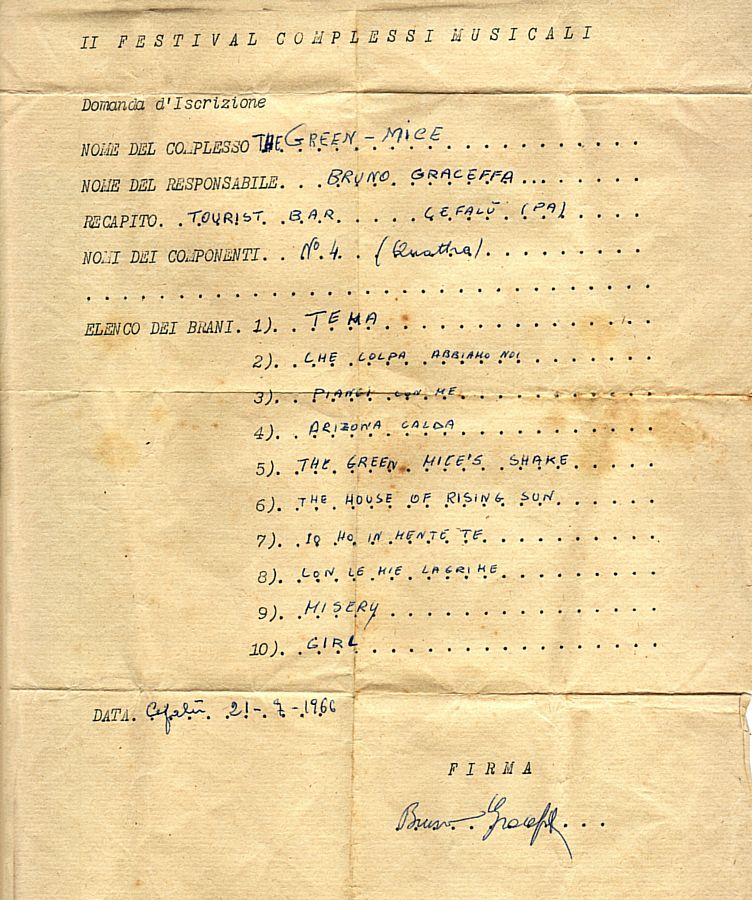 II FESTIVAL COMPLESSI MUSICALI
Domanda d'Iscrizione
NOME DEL COMPLESSO THE GREEN-MICE
NOME DEL RESPONSABILE... BRUNO GRACEFFA
RECAPITO.. TOURIST BAR CEFALÙ (PA)
NOMI DEI COMPONENTI.. N° 4 (Quattro)
ELENCO DEI BRANI. 1).. TEMA
2).. CHE COLPA ABBIAMO NOI
3).. PIANGI CON ME
4).. ARIZONA CALDA
5). THE GREEN MICE'S SHAKE
6). THE HOUSE OF RISING SUN
7). IO HO IN MENTE TE
8). CON LE MIE LAGRIME
9). MISERY
10).. GIRL
DATA. Cefalù. 21-7-1966
FIRMA
Bruno Graceffa